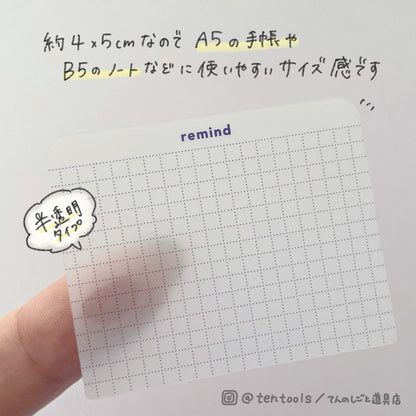 約4×5cmなので A5の手帳や
B5のノートなどに使いやすいサイズ感です
remind
半透明
タイプ
@tentools/てんのしごと道具店